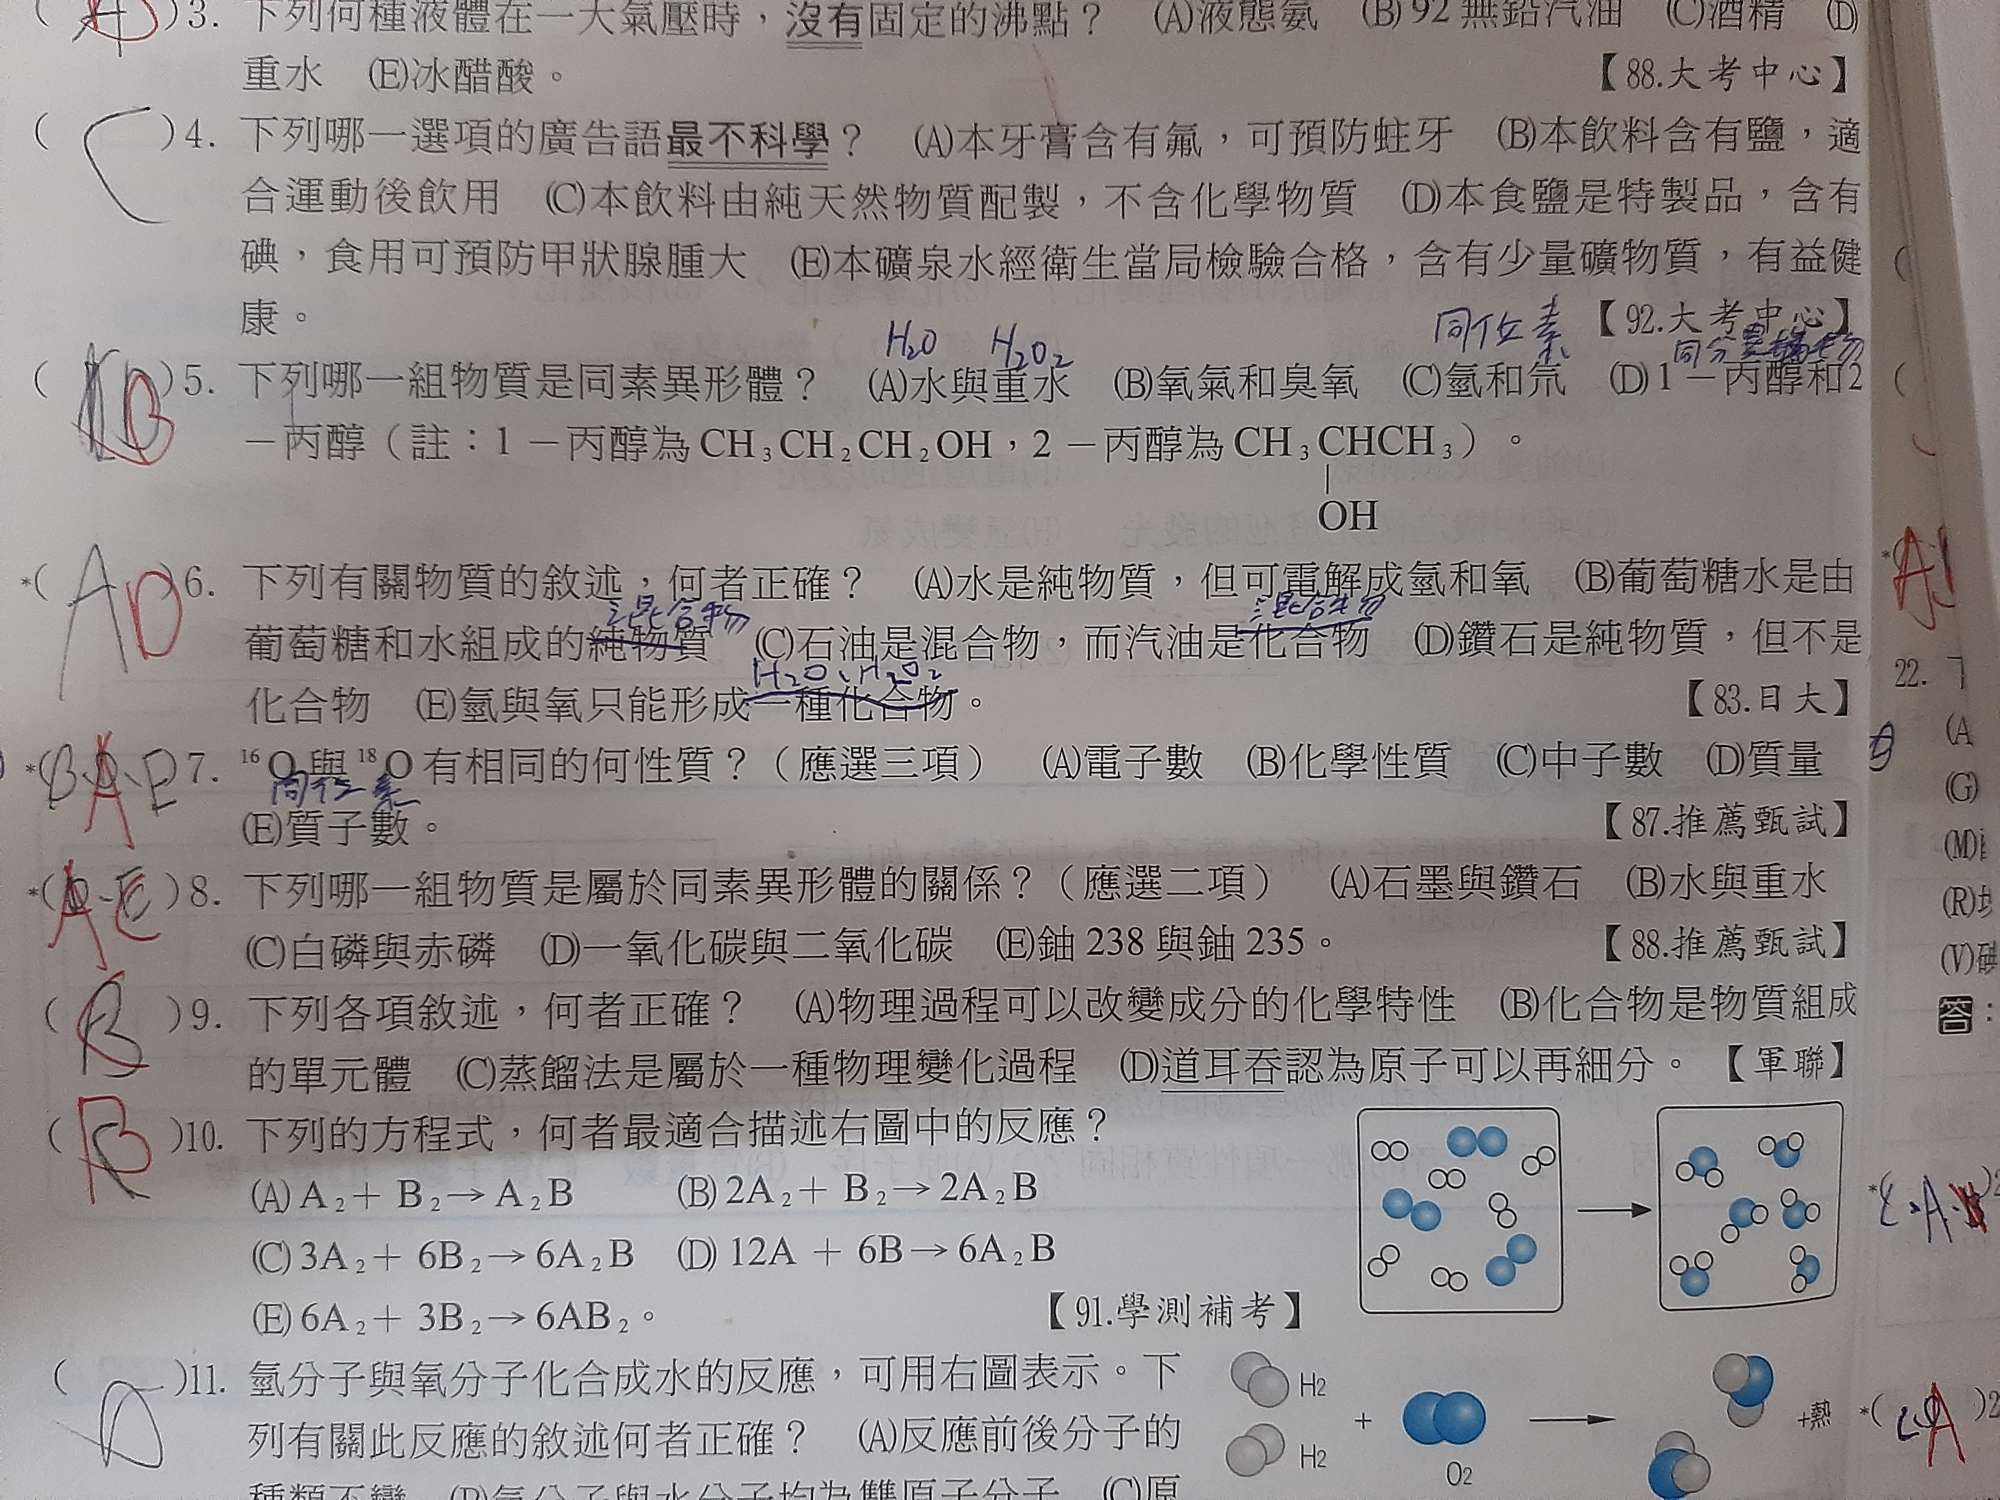 )3. 下列何種液體在一大氣壓時，沒有固定的沸點？ (A)液態氨 (B)92無鉛汽油 (C)酒精 (D)
重水 (E)冰醋酸。 【88.大考中心】
( C )4. 下列哪一選項的廣告語最不科學？ (A)本牙膏含有氟，可預防蛀牙 (B)本飲料含有鹽，適
合運動後飲用 (C)本飲料由純天然物質配製，不含化學物質 (D)本食鹽是特製品，含有
碘，食用可預防甲狀腺腫大 (E)本礦泉水經衛生當局檢驗合格，含有少量礦物質，有益健
康。 【92.大考中心】
H₂O H₂O₂ 同位素
( B )5. 下列哪一組物質是同素異形體？ (A)水與重水 (B)氧氣和臭氧 (C)氫和氘 (D)1－丙醇和2
－丙醇（註：1－丙醇為CH₃CH₂CH₂OH，2－丙醇為CH₃CHCH₃）。
OH
*( A D )6. 下列有關物質的敘述，何者正確？ (A)水是純物質，但可電解成氫和氧 (B)葡萄糖水是由
混合物 混合物
葡萄糖和水組成的純物質 (C)石油是混合物，而汽油是化合物 (D)鑽石是純物質，但不是
H₂O、H₂O₂
化合物 (E)氫與氧只能形成一種化合物。 【83.日大】
*( B A E )7. ¹⁶O與¹⁸O有相同的何性質？（應選三項） (A)電子數 (B)化學性質 (C)中子數 (D)質量
同位素
(E)質子數。 【87.推薦甄試】
*( A C )8. 下列哪一組物質是屬於同素異形體的關係？（應選二項） (A)石墨與鑽石 (B)水與重水
(C)白磷與赤磷 (D)一氧化碳與二氧化碳 (E)鈾238與鈾235。 【88.推薦甄試】
( )9. 下列各項敘述，何者正確？ (A)物理過程可以改變成分的化學特性 (B)化合物是物質組成
的單元體 (C)蒸餾法是屬於一種物理變化過程 (D)道耳吞認為原子可以再細分。 【軍聯】
( B )10. 下列的方程式，何者最適合描述右圖中的反應？
(A) A₂+ B₂→A₂B (B) 2A₂+ B₂→2A₂B
(C) 3A₂+ 6B₂→6A₂B (D) 12A + 6B→6A₂B
(E) 6A₂+ 3B₂→6AB₂。 【91.學測補考】
( D )11. 氫分子與氧分子化合成水的反應，可用右圖表示。下
列有關此反應的敘述何者正確？ (A)反應前後分子的
種類不變 (B)氧分子與水分子均為雙原子分子 (C)原
H₂
H₂
+
O₂
+熱
22.
(A
(G)
(M)
(R)
(V)碘
答：